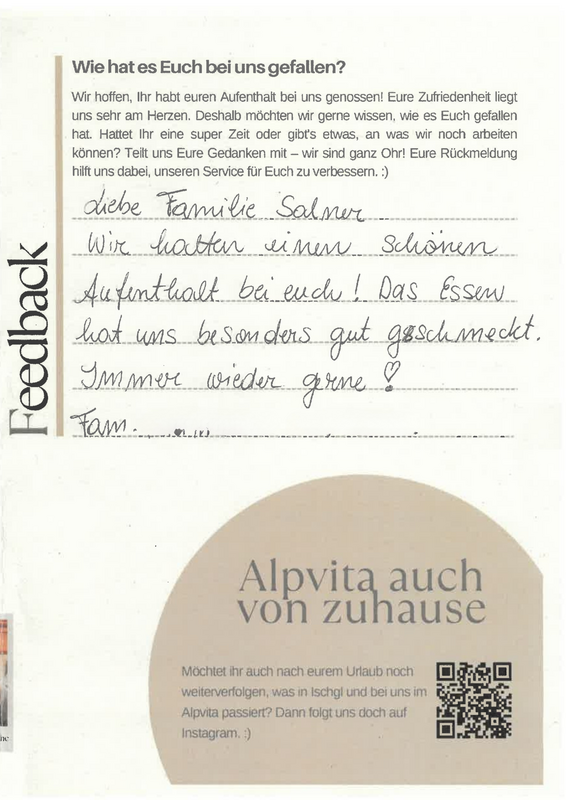 Wie hat es Euch bei uns gefallen?
Wir hoffen, Ihr habt euren Aufenthalt bei uns genossen! Eure Zufriedenheit liegt
uns sehr am Herzen. Deshalb möchten wir gerne wissen, wie es Euch gefallen
hat. Hattet Ihr eine super Zeit oder gibt's etwas, an was wir noch arbeiten
können? Teilt uns Eure Gedanken mit – wir sind ganz Ohr! Eure Rückmeldung
hilft uns dabei, unseren Service für Euch zu verbessern. :)
Feedback
Liebe Familie Salner
Wir hatten einen schönen
Aufenthalt bei euch! Das Essen
hat uns besonders gut geschmeckt.
Immer wieder gerne!
Fam.
Alpvita auch
von zuhause
Möchtet ihr auch nach eurem Urlaub noch
weiterverfolgen, was in Ischgl und bei uns im
Alpvita passiert? Dann folgt uns doch auf
Instagram. :)